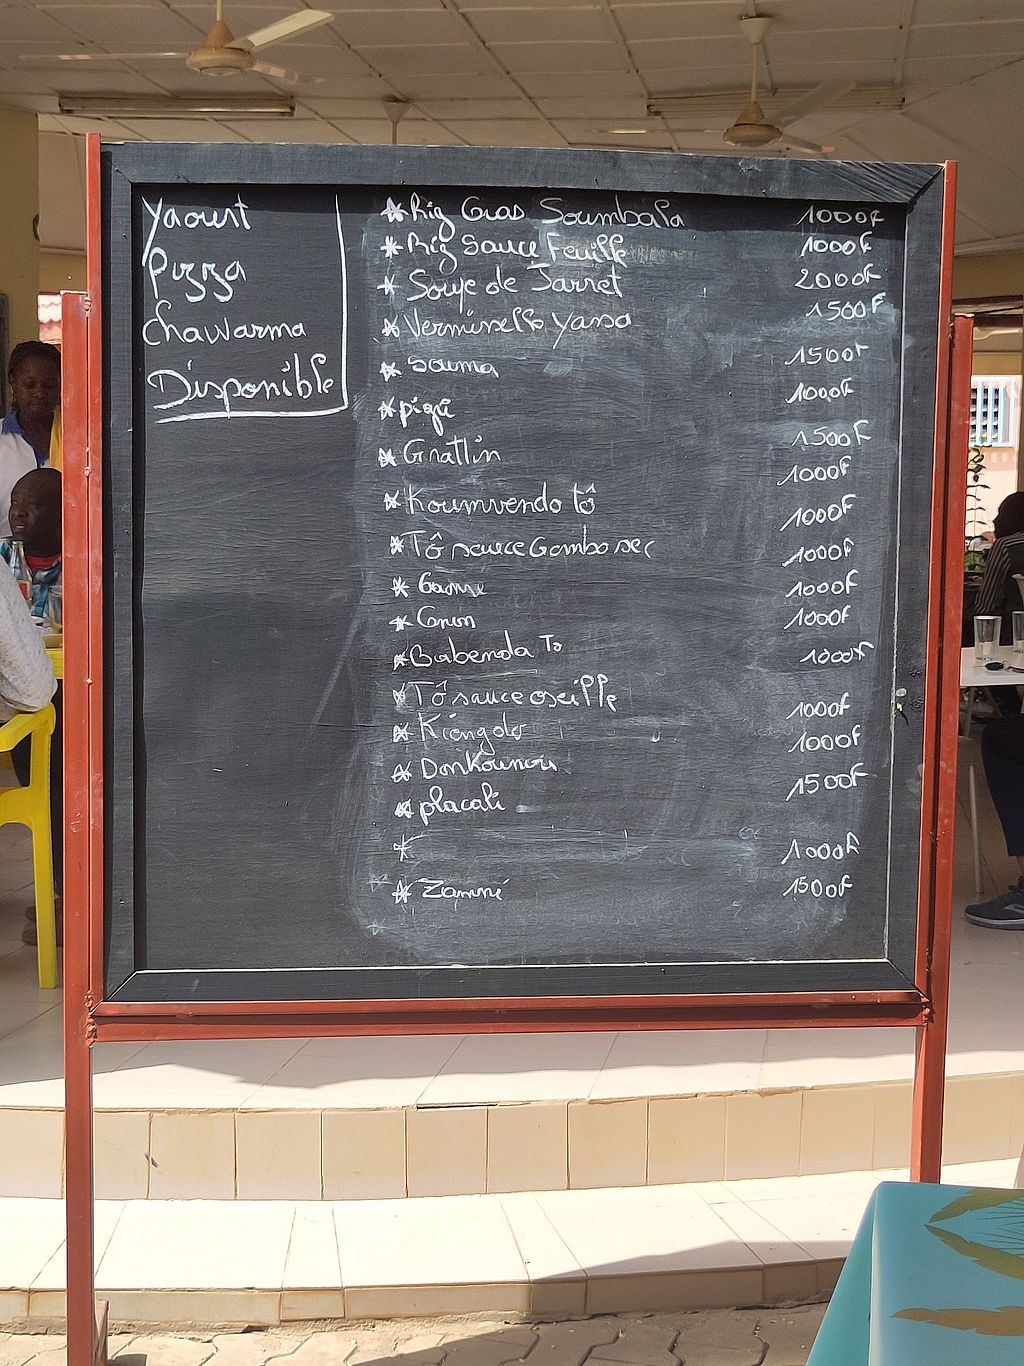 Yaourt
Pizza
Chawarma
Disponible
* Riz Gras Soumbala 1000F
* Riz Sauce Feuille 1000F
* Soupe de Jarret 2000F
* Vermiselle Yassa 1500F
* Souma 1500F
* piqé 1000F
* Grattin 1500F
1000F
* Koumvendo tô
1000F
* Tô sauce Gombo sec
1000F
* 1000F
* 1000F
* Babenda To 1000F
* Tô sauce oseille
1000F
* Kiengolo
1000F
* Donkounou
1500F
* placali
* 1000F
* Zammé 1500F